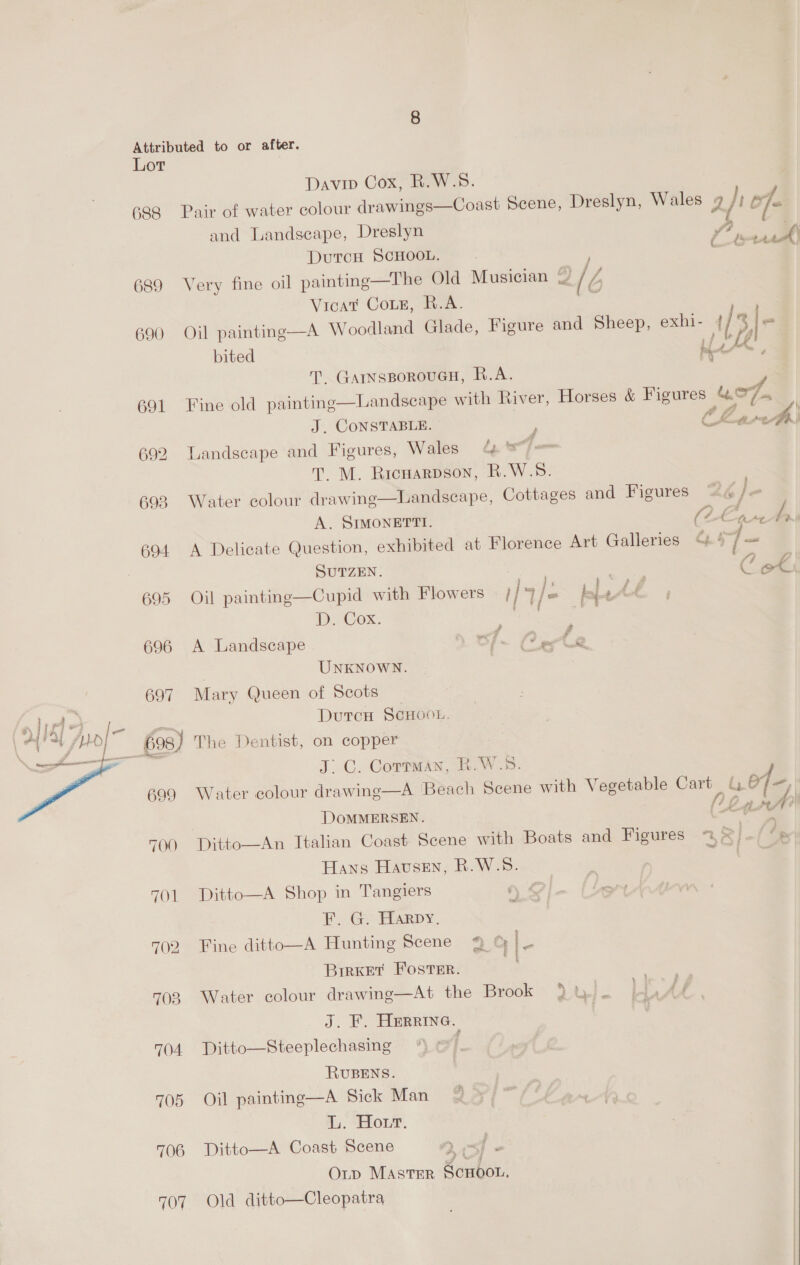 8
Attributed to or after.
Lot
David Cox, R.W.S.
688 Pair of water colour drawings—Coast Scene, Dreslyn, Wales
and Landscape, Dreslyn
Dutch School.
689 Very fine oil painting—The Old Musician
Vicat Cole, R.A.
690 Oil painting—A Woodland Glade, Figure and Sheep, exhi-
bited
T. Gainsborough, R.A.
691 Fine old painting—Landscape with River, Horses & Figures
J. Constable.
692 Landscape and Figures, Wales
T. M. Richardson, R.W.S.
693 Water colour drawing—Landscape, Cottages and Figures
A. Simonetti.
694 A Delicate Question, exhibited at Florence Art Galleries
Sutzen.
695 Oil painting—Cupid with Flowers 1/7/-
D. Cox.
696 A Landscape
Unknown.
697 Mary Queen of Scots
Dutch School.
698 The Dentist, on copper
J. C. Cottman, R.W.S.
699 Water colour drawing—A Beach Scene with Vegetable Cart
Dommersen.
700 Ditto—An Italian Coast Scene with Boats and Figures
Hans Hausen, R.W.S.
701 Ditto—A Shop in Tangiers
F. G. Hardy.
702 Fine ditto—A Hunting Scene
Birket Foster.
703 Water colour drawing—At the Brook
J. F. Herring.
704 Ditto—Steeplechasing
Rubens.
705 Oil painting—A Sick Man
L. Holt.
706 Ditto—A Coast Scene
Old Master School.
707 Old ditto—Cleopatra